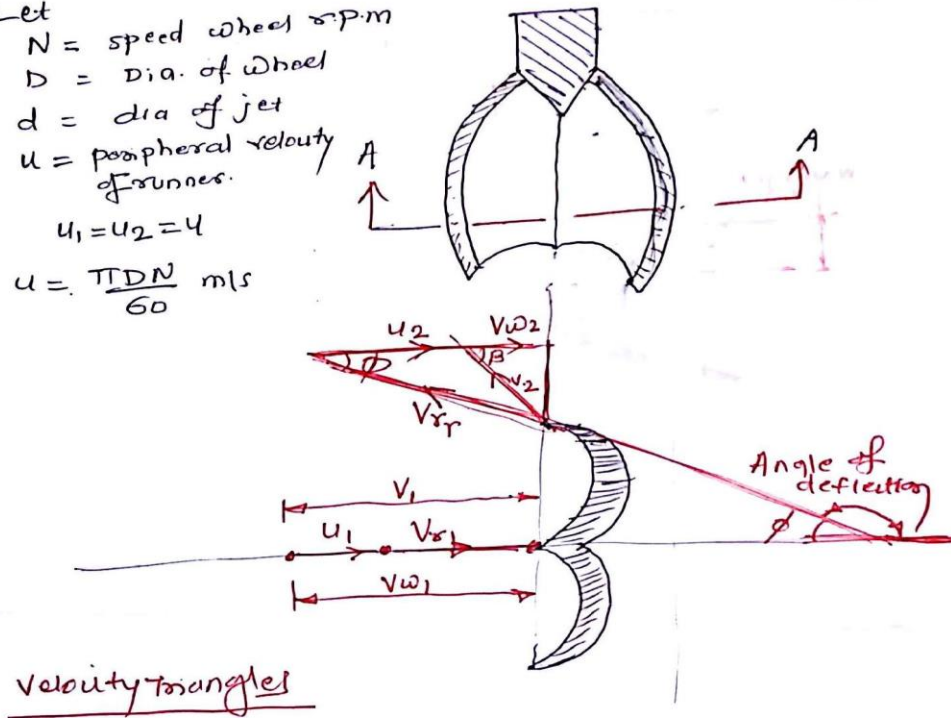 Let
N = speed wheel r.p.m
D = Dia. of wheel
d = dia of jet
u = peripheral velouty
of runner.
u₁ = u₂ = u
u = πDN/60 m/s
A A
u₂ Vω₂
ϕ β V₂
Vrr
Angle of
deflection
V₁
ϕ
u₁ Vr₁
Vω₁
Velouty Triangles